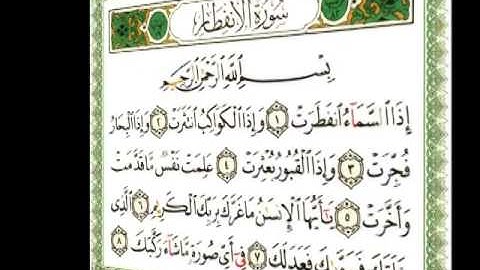 سُورَةُ الْاِنْفِطَارِ
بِسْمِ اللَّهِ الرَّحْمَنِ الرَّحِيمِ
إِذَا السَّمَآءُ انفَطَرَتْ ١ وَإِذَا الْكَوَاكِبُ انتَثَرَتْ ٢ وَإِذَا الْبِحَارُ
فُجِّرَتْ ٣ وَإِذَا الْقُبُورُ بُعْثِرَتْ ٤ عَلِمَتْ نَفْسٌ مَّا قَدَّمَتْ
وَأَخَّرَتْ ٥ يَٰٓأَيُّهَا الْإِنسَٰنُ مَا غَرَّكَ بِرَبِّكَ الْكَرِيمِ ٦ الَّذِى
خَلَقَكَ فَسَوَّىٰكَ فَعَدَلَكَ ٧ فِىٓ أَىِّ صُورَةٍ مَّا شَآءَ رَكَّبَكَ ٨